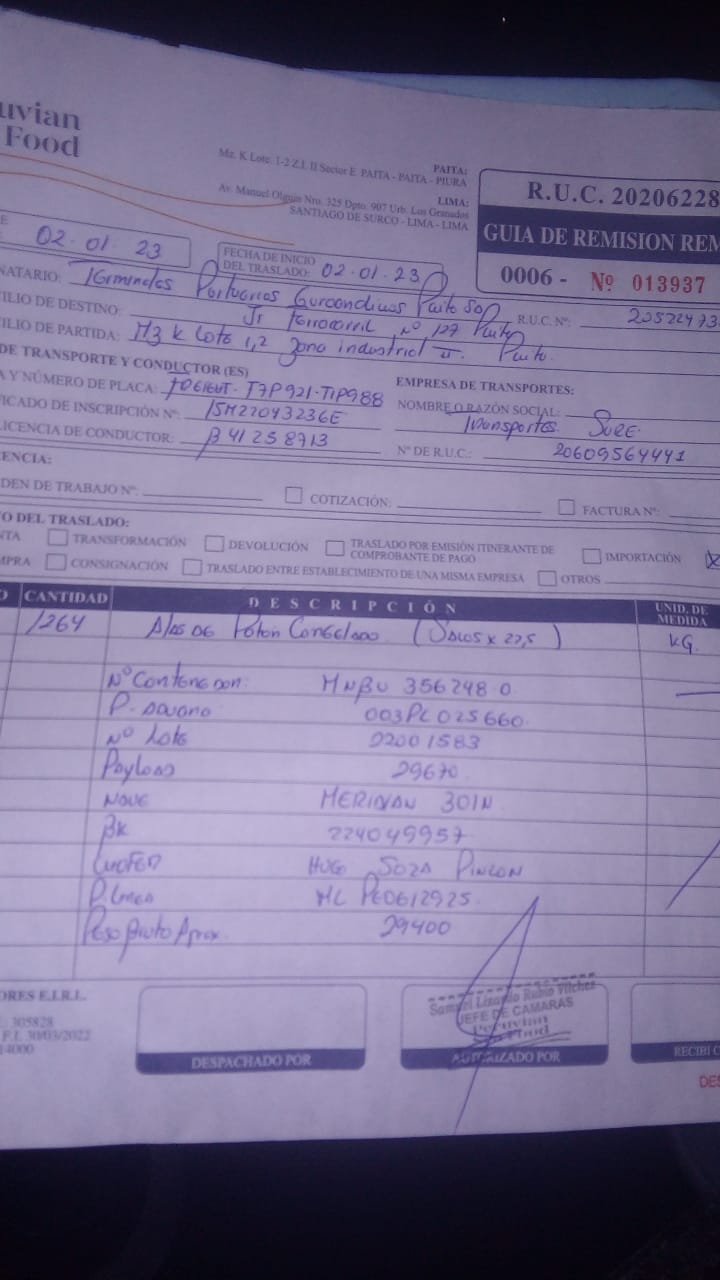 uvian
Food
PAITA:
Mz. K Lote. 1-2 Z.I. II Sector E PAITA - PAITA - PIURA
LIMA:
Av. Manuel Olguin Nro. 325 Dpto. 907 Urb. Los Granados
SANTIAGO DE SURCO - LIMA - LIMA
R.U.C. 20206228
GUIA DE REMISION REM
0006 - Nº 013937
E 02.01.23
FECHA DE INICIO
DEL TRASLADO: 02.01.23
NATARIO: Terminales Portuarios Euroandinos Paita
R.U.C. Nº: 20522473
ILIO DE DESTINO: Jr Ferrocarril Nº 127 Paita
ILIO DE PARTIDA: Mz K Lote 1,2 Zona industrial II. Paita.
DE TRANSPORTE Y CONDUCTOR (ES)
A Y NÚMERO DE PLACA: T7P921-T1P988
FICADO DE INSCRIPCIÓN Nº: 15M22043236E
LICENCIA DE CONDUCTOR: B41258713
EMPRESA DE TRANSPORTES:
NOMBRE O RAZÓN SOCIAL:
Transportes SURE.
Nº DE R.U.C.: 20609564441
ENCIA:
DEN DE TRABAJO Nº:
COTIZACIÓN:
FACTURA Nº:
O DEL TRASLADO:
NTA TRANSFORMACIÓN DEVOLUCIÓN TRASLADO POR EMISIÓN ITINERANTE DE
COMPROBANTE DE PAGO IMPORTACIÓN
MPRA CONSIGNACIÓN TRASLADO ENTRE ESTABLECIMIENTO DE UNA MISMA EMPRESA OTROS
O CANTIDAD DESCRIPCIÓN UNID. DE
MEDIDA
1264 Alas de Poton Congelado (Sacos x 22,5) KG.
Nº Contenedor: MNBU 356248.0
P. Aduana 003PL025660.
Nº Lote 22001583
Payload 29670.
Nave MERIDIAN 301N
BK 224049957
Chofer HUGO SOZA PINCON
P. Linea ML PE0612925.
Peso Bruto Aprox. 29400
ORES E.I.R.L.
305828
F.I. 30/03/2022
14000
DESPACHADO POR
Samuel Lizardo Rubio Vilchez
JEFE DE CAMARAS
Peruvian
Sea Food
AUTORIZADO POR
RECIBI C
DES